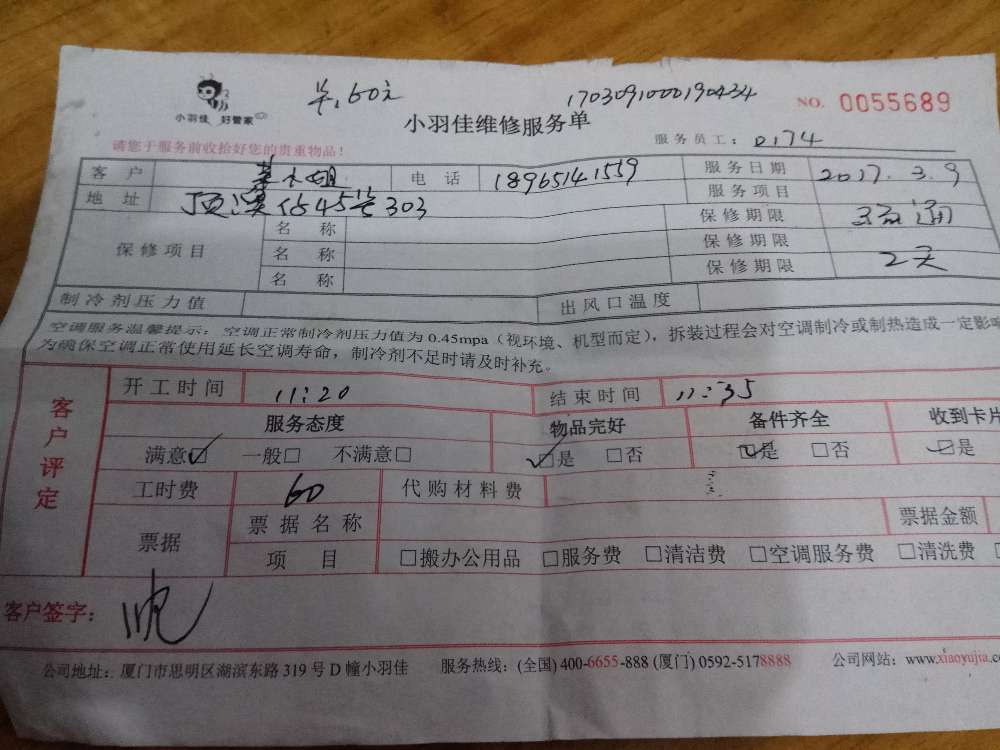 60元 1703091000190434 NO. 0055689
小羽佳 好管家
小羽佳维修服务单
服务员工: 0174
请您于服务前收拾好您的贵重物品!
客户 小姐 电话 18965141559 服务日期 2017.3.9
地址 顶澳仔45号303 服务项目
保修项目 名称 保修期限
名称 保修期限
名称 保修期限 2天
制冷剂压力值 出风口温度
空调服务温馨提示: 空调正常制冷剂压力值为0.45mpa (视环境、机型而定), 拆装过程会对空调制冷或制热造成一定影响
为确保空调正常使用延长空调寿命, 制冷剂不足时请及时补充。
客户评定
开工时间 11:20 结束时间 11:35
服务态度 物品完好 备件齐全 收到卡片
满意☑ 一般□ 不满意□ ☑是 □否 ☑是 □否 ☑是
工时费 60 代购材料费
票据 票据名称 票据金额
项目 □搬办公用品 □服务费 □清洁费 □空调服务费 □清洗费
客户签字:
公司地址: 厦门市思明区湖滨东路319号D幢小羽佳 服务热线: (全国) 400-6655-888 (厦门) 0592-5178888 公司网站: www.xiaoyujia.co